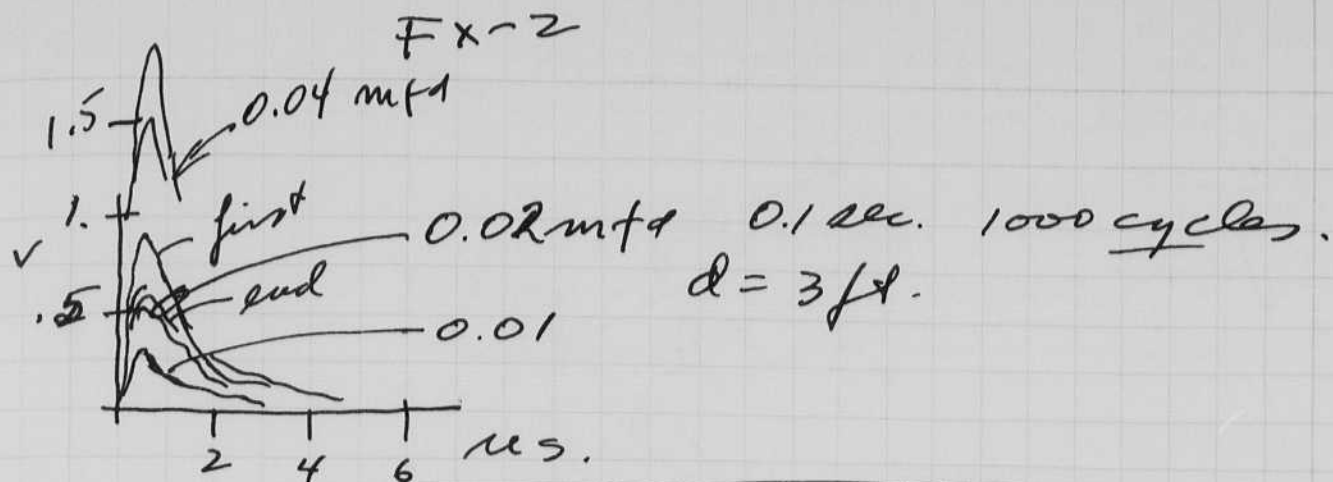 FX-2
1.5
0.04 mfd
1.
first
0.02 mfd 0.1 sec. 1000 cycles.
v
end
d = 3 ft.
.5
0.01
2 4 6 us.